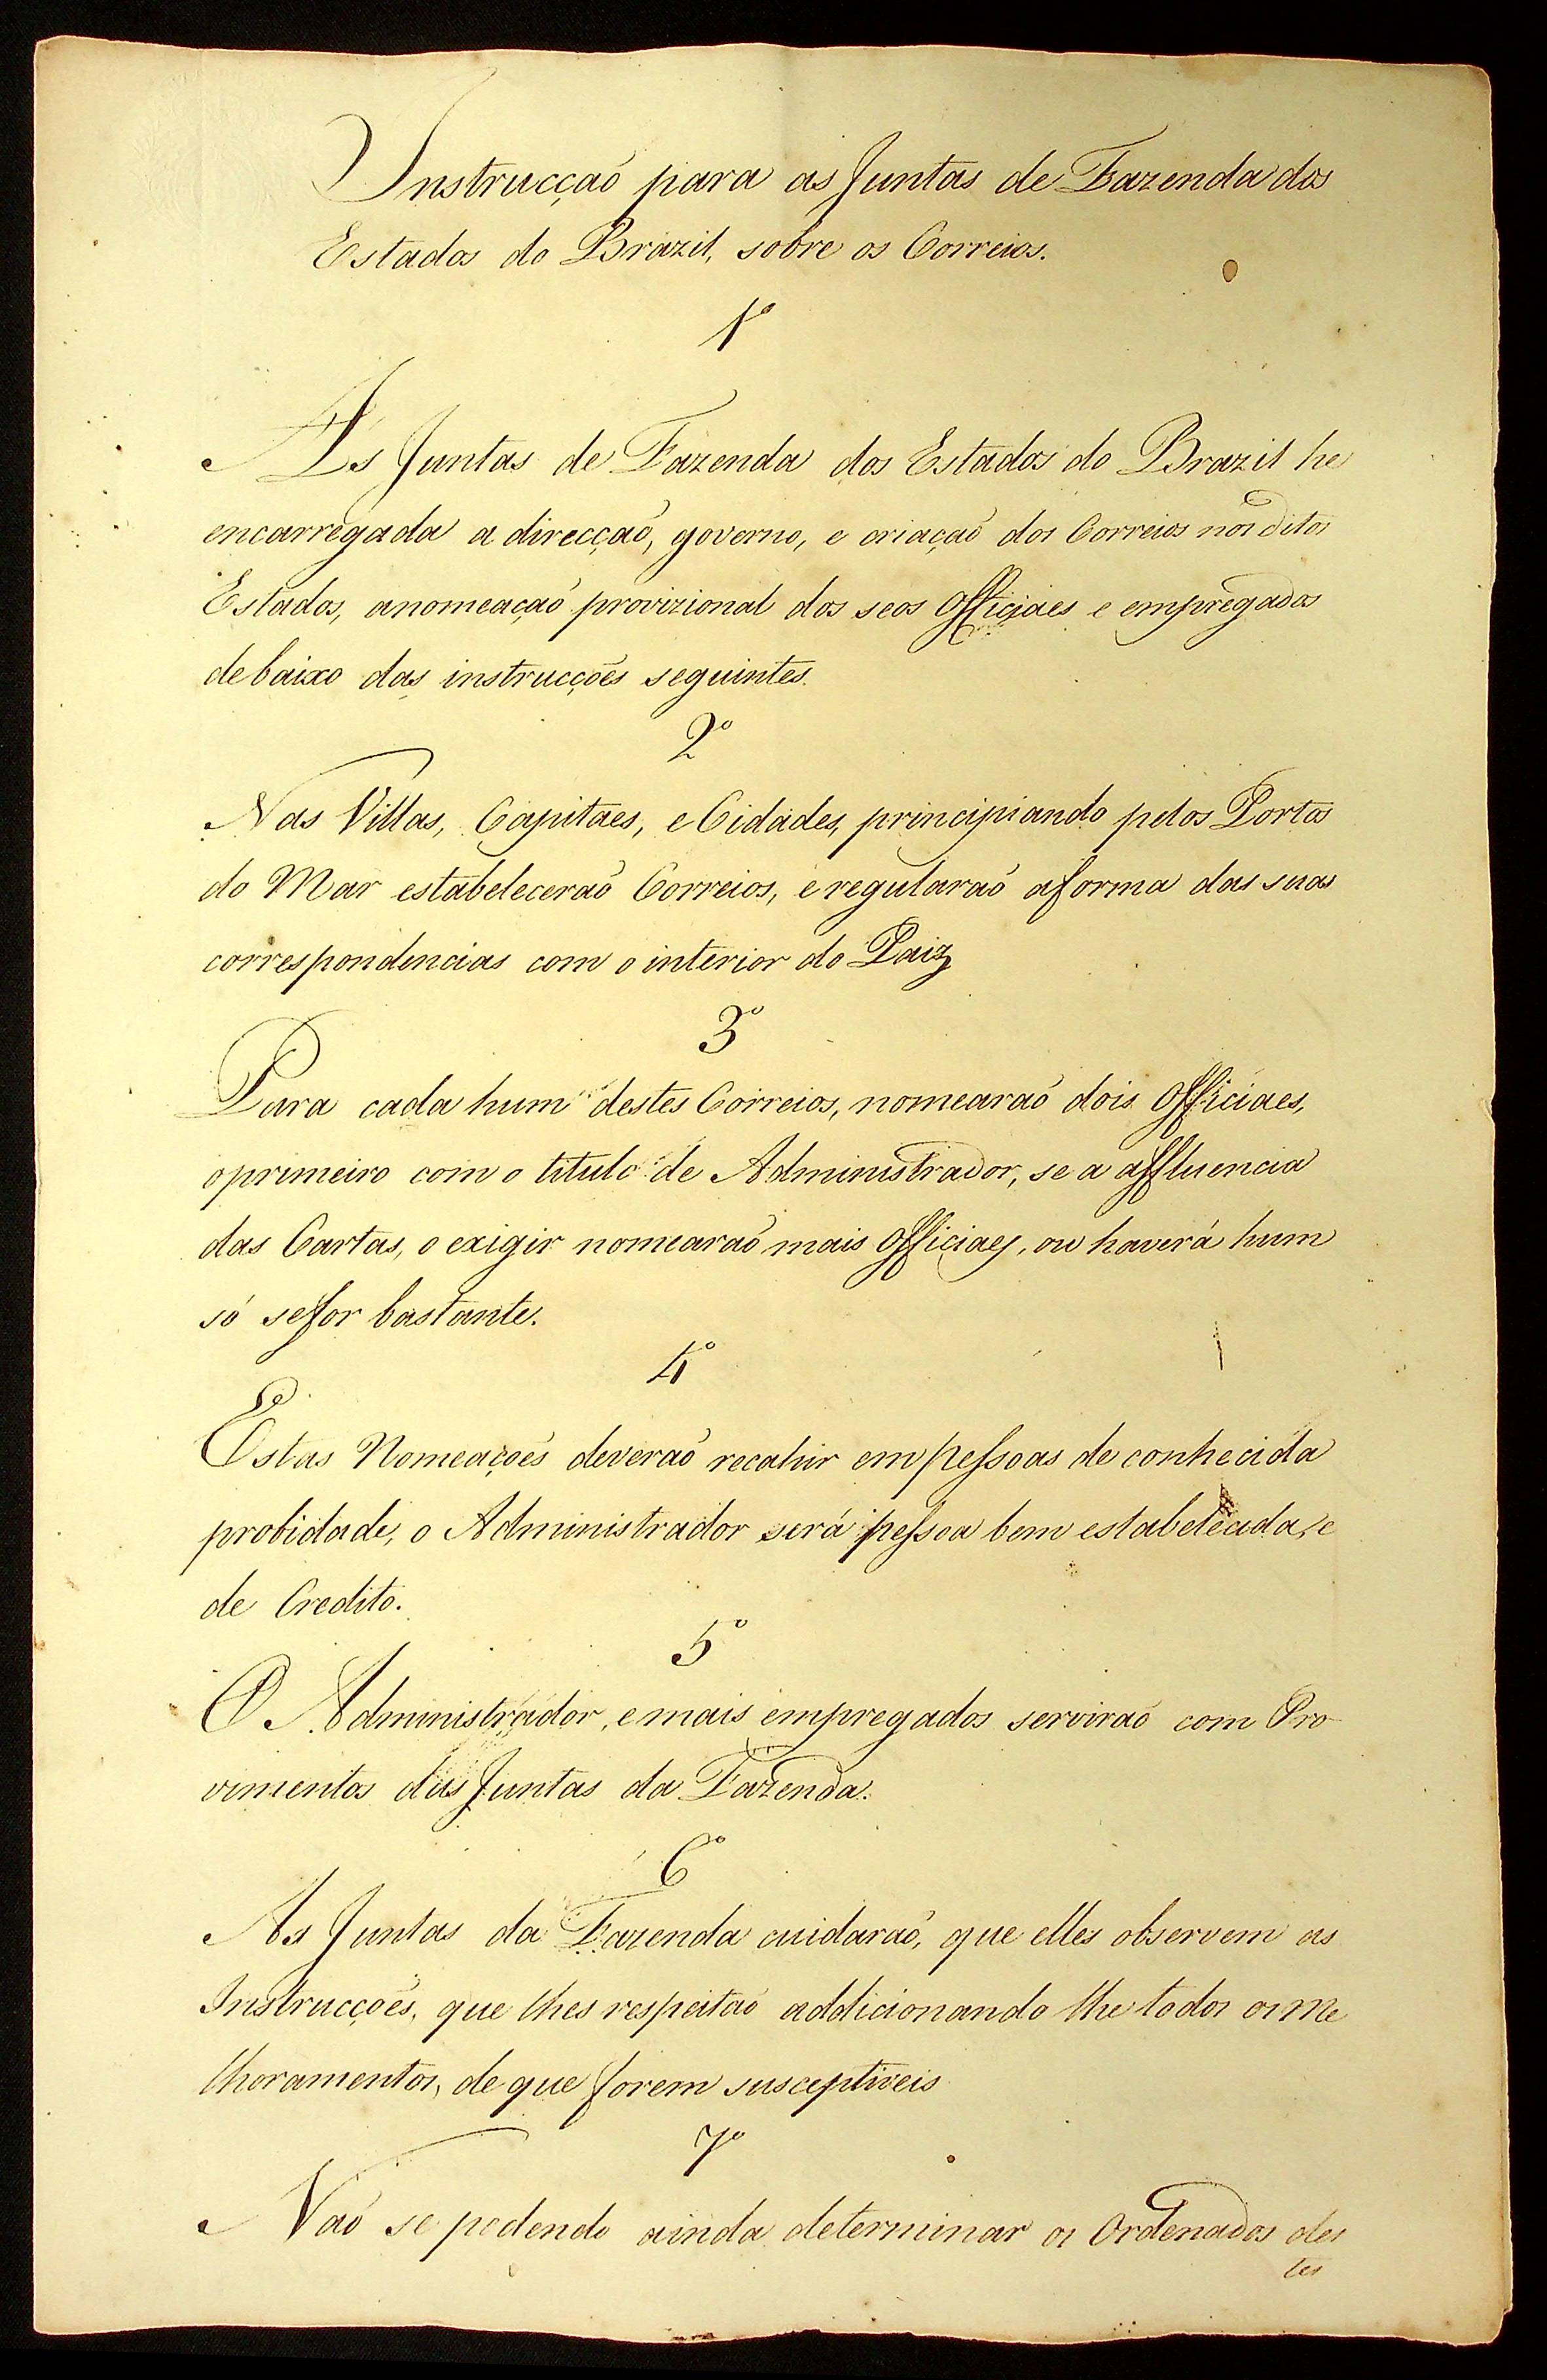 Instrucçaõ para as Juntas de Fazenda dos
Estados do Brazil, sobre os Correios.
1º
As Juntas de Fazenda dos Estados do Brazil he
encarregada a direcçaõ, governo, e criaçaõ dos Correios nos ditos
Estados, anomeaçaõ provizional dos seos Officiaes e empregados
debaixo das instrucções seguintes.
2º
Nas Villas, Capitaes, e Cidades, principiando pelos Portos
do Mar estabeleceraõ Correios, e regularaõ aforma das suas
correspondencias com o interior do Paiz
3º
Para cada hum destes Correios, nomearaõ dois Officiaes,
oprimeiro com o titulo de Administrador, se a affluencia
das Cartas, o exigir nomearaõ mais Officiaes, ou haverá hum
só sefor bastante.
4º
Estas Nomeações deveraõ recahir em pessoas de conhecida
probidade, o Administrador será pessoa bem estabelecida, e
de Credito.
5º
O Administrador, e mais empregados serviraõ com Pro
vimentos das Juntas da Fazenda.
6º
As Juntas da Fazenda cuidaraõ, que elles observem as
Instrucções, que lhes respeitaõ addicionando lhe todos os Me
lhoramentos, de que forem susceptiveis
7º
Naõ se podendo ainda determinar os Ordenados des
tes